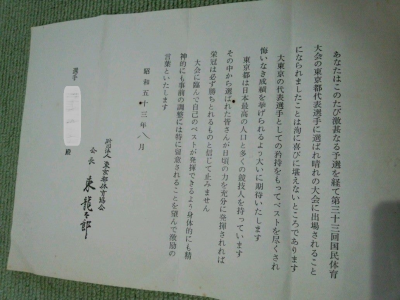 あなたはこのたび激甚なる予選を経て第三十三回国民体育
大会の東京都代表選手に選ばれ晴れの大会に出場されること
になられましたことは洵に喜びに堪えないところであります
大東京の代表選手としての矜持をもってベストを尽くされ
悔いなき成績を挙げられるよう大いに期待いたします
東京都は日本最高の人口と多くの競技人を持っています
その中から選ばれた皆さんが日頃の力を充分に発揮されれば
栄冠は必ず勝ちとれるものと信じて止みません
大会に臨んで自己のベストが発揮できるよう身体的にも精
神的にも事前の調整には特に留意されることを望んで激励の
言葉といたします
昭和五十三年八月
財団法人東京都体育協会
会長 東龍太郎
選手
殿